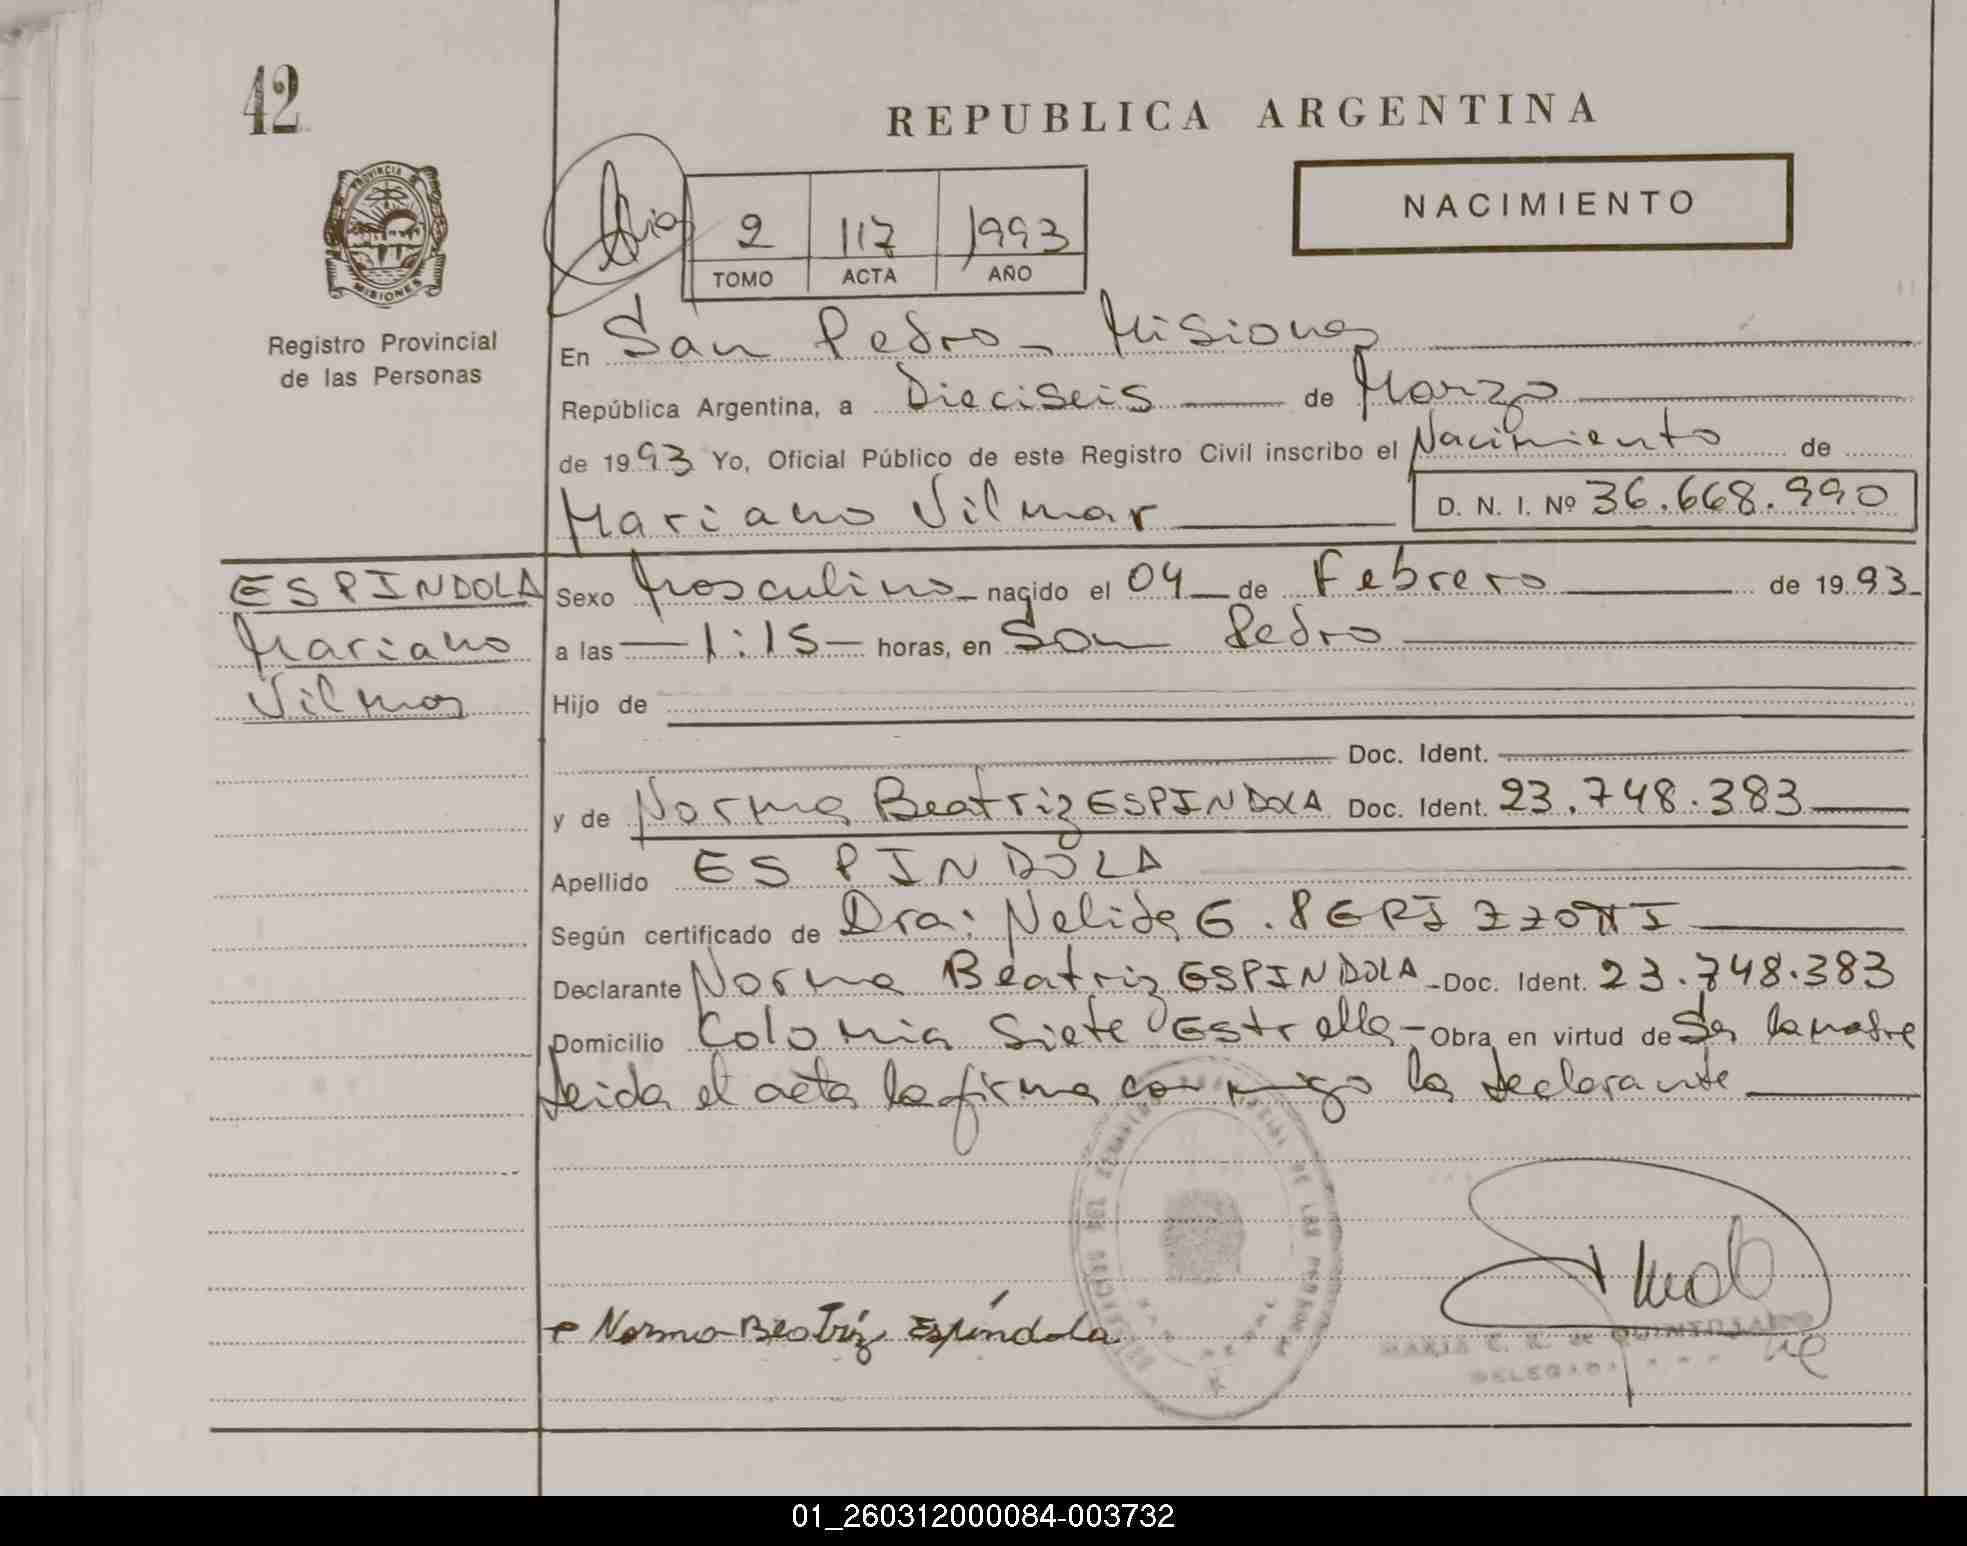 42
REPUBLICA ARGENTINA
PROVINCIA DE
MISIONES
NACIMIENTO
2 117 1993
TOMO ACTA AÑO
Registro Provincial
de las Personas
En San Pedro - Misiones
República Argentina, a Dieciseis de Marzo
de 1993 Yo, Oficial Público de este Registro Civil inscribo el Nacimiento de
Mariano Vilmar D. N. I. Nº 36.668.990
ESPINDOLA
Mariano
Vilmar
Sexo Masculino nacido el 04 de Febrero de 1993
a las 1:15 horas, en San Pedro
Hijo de
Doc. Ident.
y de Norma Beatriz ESPINDOLA Doc. Ident. 23.748.383
Apellido ESPINDOLA
Según certificado de Dra: Nelida G.
Declarante Norma Beatriz ESPINDOLA - Doc. Ident. 23.748.383
Domicilio Colonia Siete Estrella - Obra en virtud de Ser la madre
Leida el acta la firma conmigo la declarante
Norma Beatríz Espíndola
MARIA C. R. de
DELEGADA
01_260312000084-003732